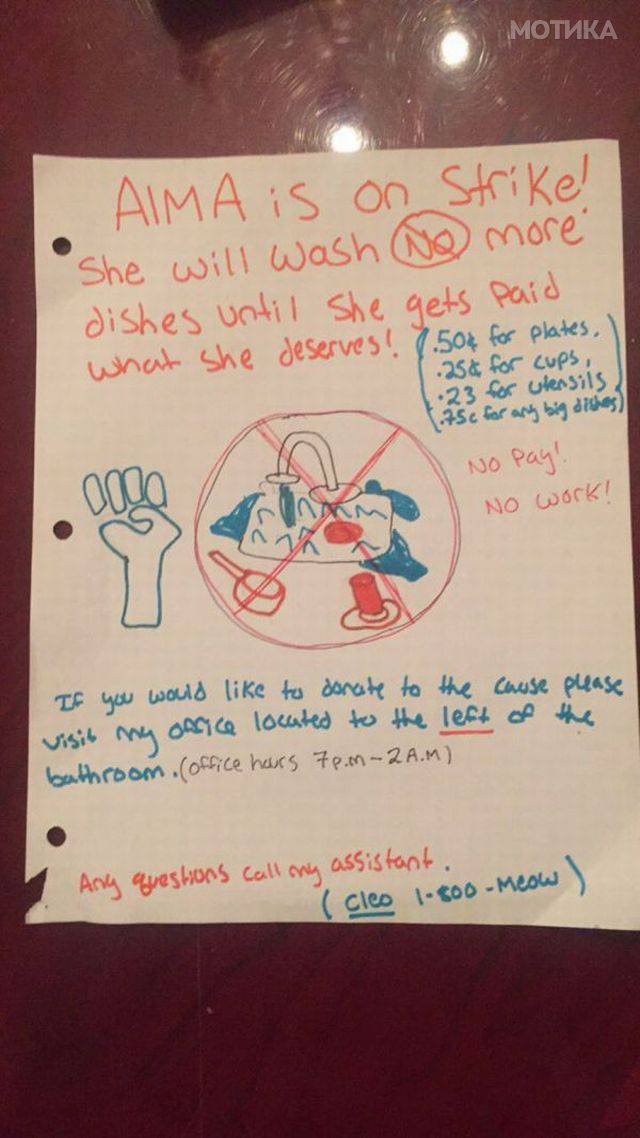 МОТИКА
AIMA is on Strike!
She will wash NO more
dishes until She gets Paid
what she deserves!
(.50¢ for plates,
.25¢ for cups,
.23 for utensils
.75c for any big dishes)
No Pay!
No work!
If you would like to donate to the cause please
visit my office located to the left of the
bathroom. (office hours 7p.m-2A.M)
Any questions call my assistant.
(Cleo 1-800-Meow)